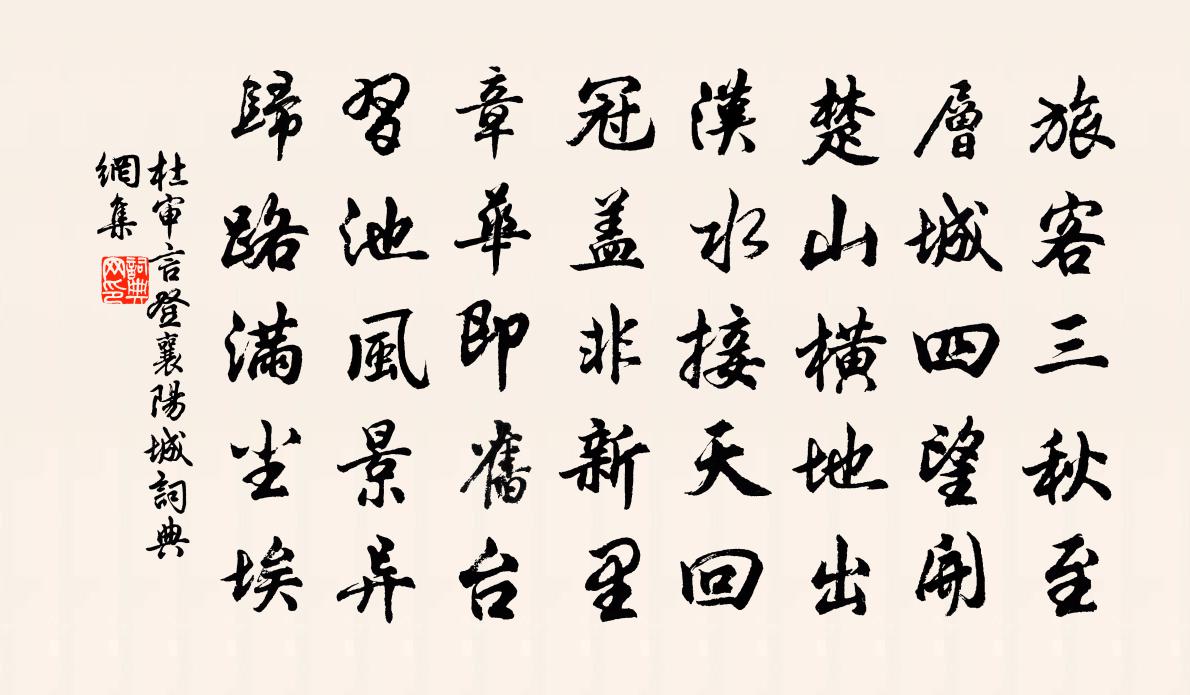 旅客三秋至
層城四望開
楚山橫地出
漢水接天回
冠盖非新里
章華即舊台
習池風景异
歸路滿尘埃
杜审言登襄陽城詞典
網集
詞典
网印